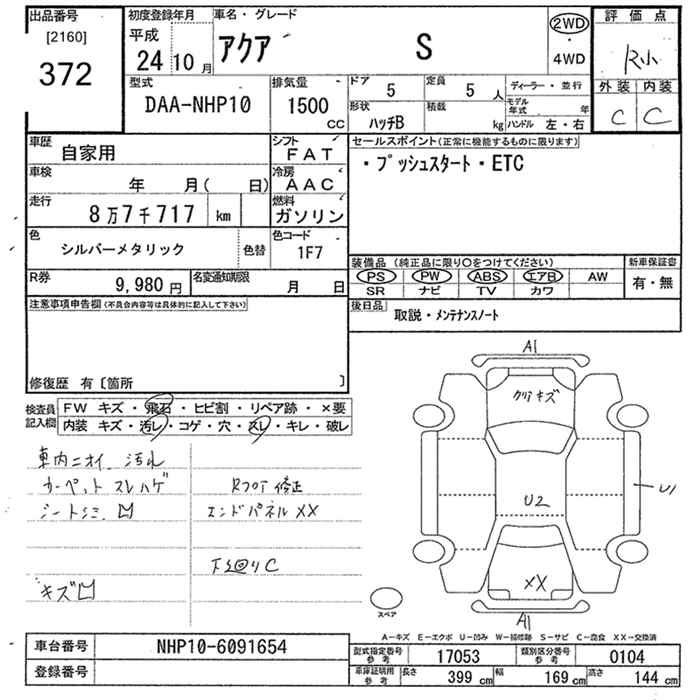 出品番号
[2160]
372
初度登録年月
平成
24 10月
車名・グレード
アクア S
2WD
・
4WD
評価点
R小
外装 内装
C C
型式
DAA-NHP10
排気量
1500
CC
ドア
5
定員
5 人
形状
ハッチB
積載
kg
ディーラー・並行
モデル年式 年
ハンドル 左・右
車歴
自家用
シフト
FAT
車検
年 月( 日)
冷房
AAC
走行
8万7千717 km
燃料
ガソリン
色
シルバーメタリック
色替
色コード
1F7
R券
9,980円
名変通知期限
月 日
セールスポイント(正常に機能するものに限ります)
・プッシュスタート・ETC
装備品 (純正品に限り○をつけてください)
PS PW ABS エアB AW
SR ナビ TV カワ
新車保証書
有・無
後日品
取説・メンテナンスノート
注意事項申告欄(不具合内容等は具体的に記入して下さい)
修復歴 有〔箇所 〕
検査員記入欄
FW キズ・飛石・ヒビ割・リペア跡・×要
内装 キズ・汚レ・コゲ・穴・スレ・キレ・破レ
車内ニオイ 汚れ
カーペット スレハゲ
シートシミ 凹
キズ凹
Rフロア修正
エンドパネルXX
下廻りC
A1
クリアキズ
U2
U1
XX
A1
スペア
A-キズ E-エクボ U-凹み W-補修跡 S-サビ C-腐食 XX-交換済
車台番号
NHP10-6091654
登録番号
型式指定番号 参考
17053
類別区分番号 参考
0104
車庫証明用 参考
長さ 399 cm
幅 169 cm
高さ 144 cm